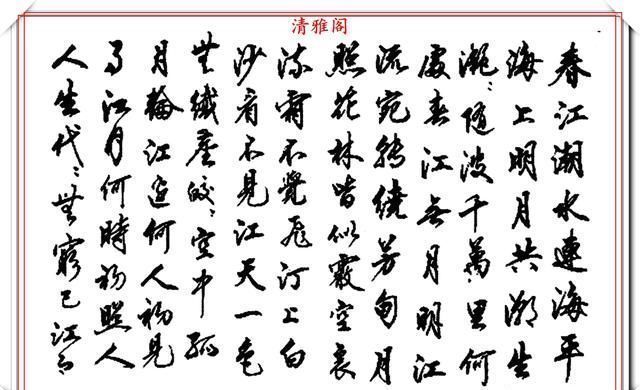 清雅阁
春江潮水連海平
海上明月共潮生
灧々随波千萬里何
處春江无月明江
流宛轉繞芳甸月
照花林皆似霰空裏
流霜不覺飛汀上白
沙看不見江天一色
無纖塵皎々空中孤
月輪江邊何人初見
月江月何時初照人
人生代々無窮已江月